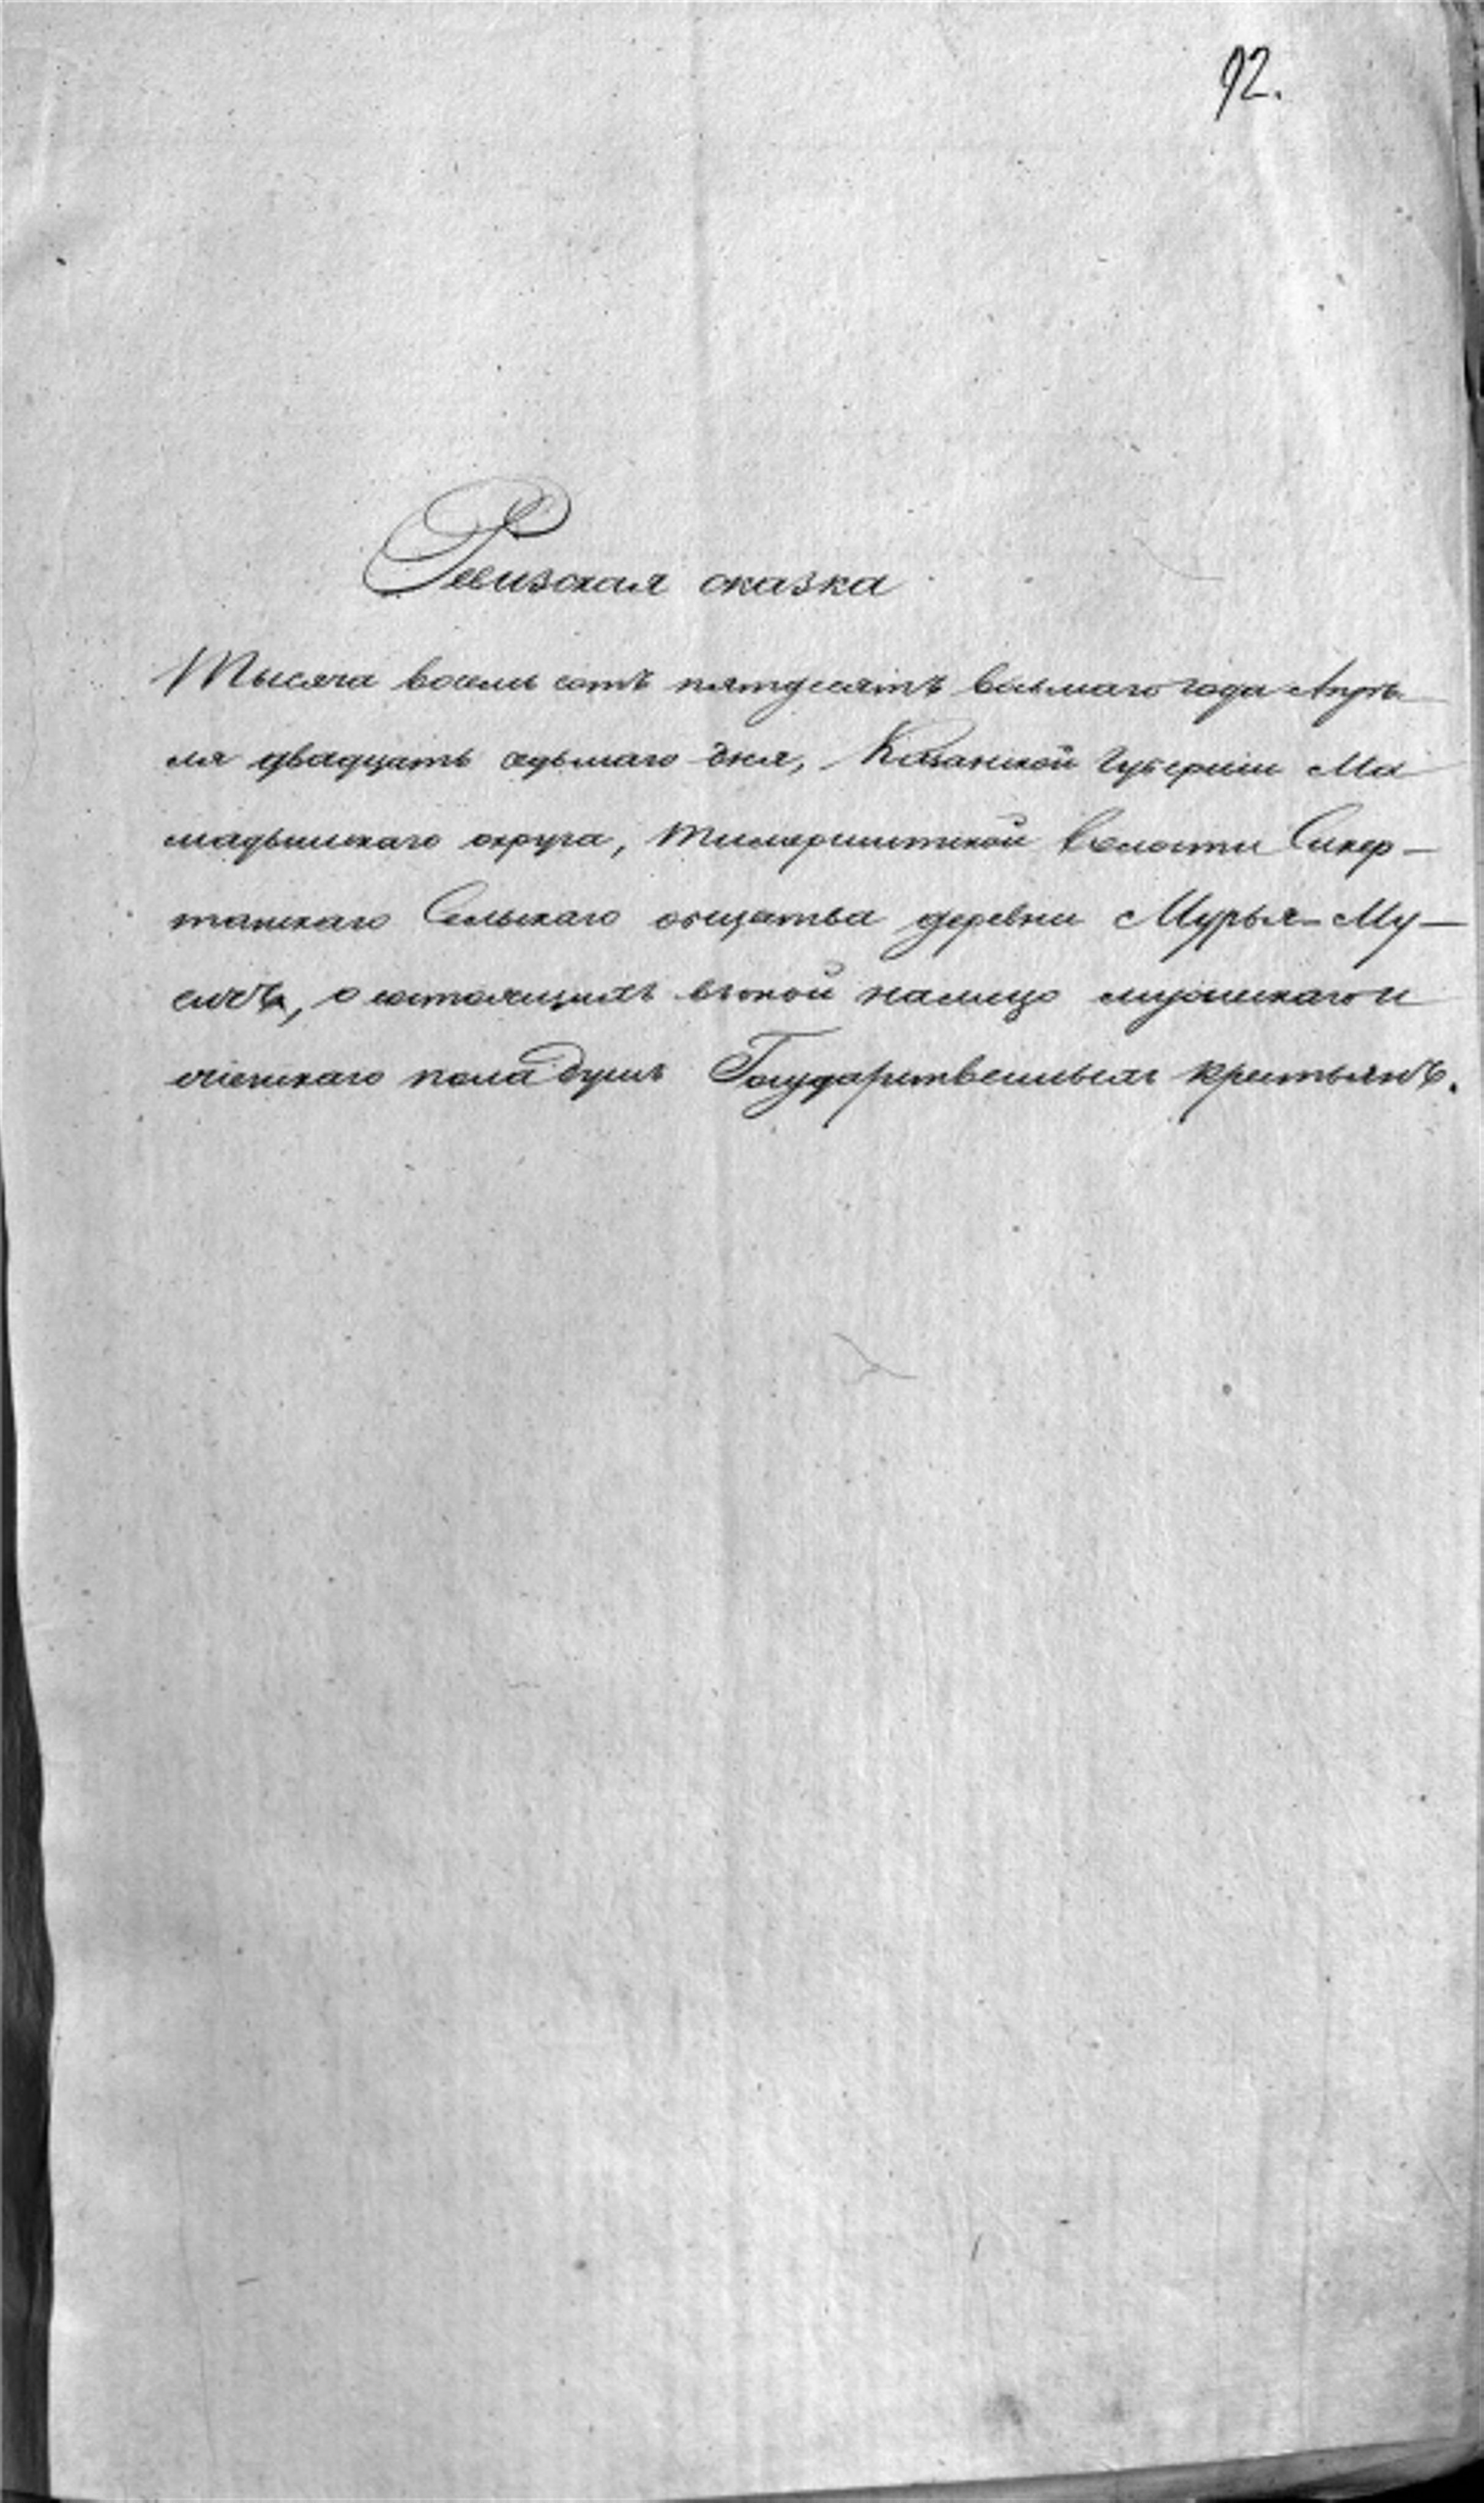 92.
Ревизская сказка
Тысяча восемь сотъ пятдесятъ восьмаго года Апрѣ
ля двадцать седьмаго дня, Казанской Губерніи Ма
мадышскаго округа, волости Сикер-
танскаго Сельскаго общества деревни Мурья-Му-
, о состоящихъ въ оной налицо мужескаго и
женскаго пола душъ Государственныхъ крестьянъ.